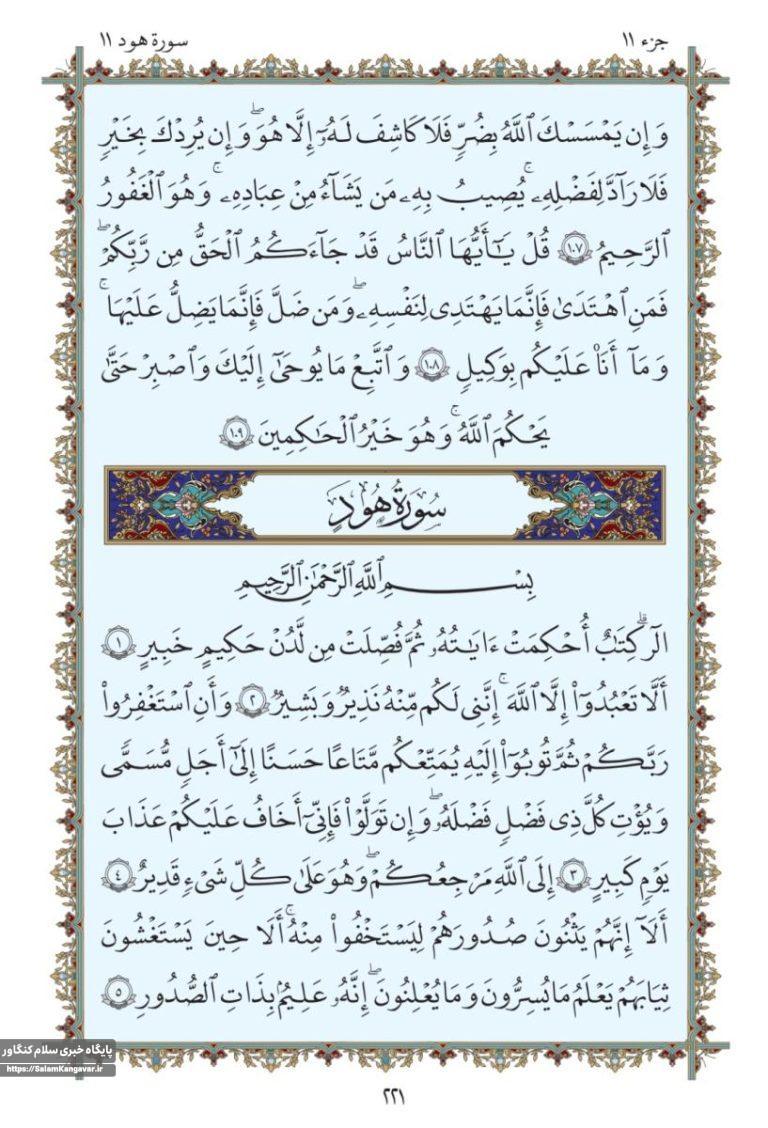 جزء ١١
سورة هود ١١
وَإِن يَمۡسَسۡكَ ٱللَّهُ بِضُرّٖ فَلَا كَاشِفَ لَهُۥٓ إِلَّا هُوَۖ وَإِن يُرِدۡكَ بِخَيۡرٖ
فَلَا رَآدَّ لِفَضۡلِهِۦۚ يُصِيبُ بِهِۦ مَن يَشَآءُ مِنۡ عِبَادِهِۦۚ وَهُوَ ٱلۡغَفُورُ
ٱلرَّحِيمُ ١٠٧ قُلۡ يَٰٓأَيُّهَا ٱلنَّاسُ قَدۡ جَآءَكُمُ ٱلۡحَقُّ مِن رَّبِّكُمۡۖ
فَمَنِ ٱهۡتَدَىٰ فَإِنَّمَا يَهۡتَدِي لِنَفۡسِهِۦۖ وَمَن ضَلَّ فَإِنَّمَا يَضِلُّ عَلَيۡهَاۖ
وَمَآ أَنَا۠ عَلَيۡكُم بِوَكِيلٖ ١٠٨ وَٱتَّبِعۡ مَا يُوحَىٰٓ إِلَيۡكَ وَٱصۡبِرۡ حَتَّىٰ
يَحۡكُمَ ٱللَّهُۚ وَهُوَ خَيۡرُ ٱلۡحَٰكِمِينَ ١٠٩
سُورَةُ هُودٍ
بِسۡمِ ٱللَّهِ ٱلرَّحۡمَٰنِ ٱلرَّحِيمِ
الٓرۚ كِتَٰبٌ أُحۡكِمَتۡ ءَايَٰتُهُۥ ثُمَّ فُصِّلَتۡ مِن لَّدُنۡ حَكِيمٍ خَبِيرٍ ١
أَلَّا تَعۡبُدُوٓاْ إِلَّا ٱللَّهَۚ إِنَّنِي لَكُم مِّنۡهُ نَذِيرٞ وَبَشِيرٞ ٢ وَأَنِ ٱسۡتَغۡفِرُواْ
رَبَّكُمۡ ثُمَّ تُوبُوٓاْ إِلَيۡهِ يُمَتِّعۡكُم مَّتَٰعًا حَسَنًا إِلَىٰٓ أَجَلٖ مُّسَمّٗى
وَيُؤۡتِ كُلَّ ذِي فَضۡلٖ فَضۡلَهُۥۖ وَإِن تَوَلَّوۡاْ فَإِنِّيٓ أَخَافُ عَلَيۡكُمۡ عَذَابَ
يَوۡمٖ كَبِيرٍ ٣ إِلَى ٱللَّهِ مَرۡجِعُكُمۡۖ وَهُوَ عَلَىٰ كُلِّ شَيۡءٖ قَدِيرٌ ٤
أَلَآ إِنَّهُمۡ يَثۡنُونَ صُدُورَهُمۡ لِيَسۡتَخۡفُواْ مِنۡهُۚ أَلَا حِينَ يَسۡتَغۡشُونَ
ثِيَابَهُمۡ يَعۡلَمُ مَا يُسِرُّونَ وَمَا يُعۡلِنُونَۖ إِنَّهُۥ عَلِيمُۢ بِذَاتِ ٱلصُّدُورِ ٥
پایگاه خبری سلام کنگاور
https://SalamKangavar.ir
٢٢١